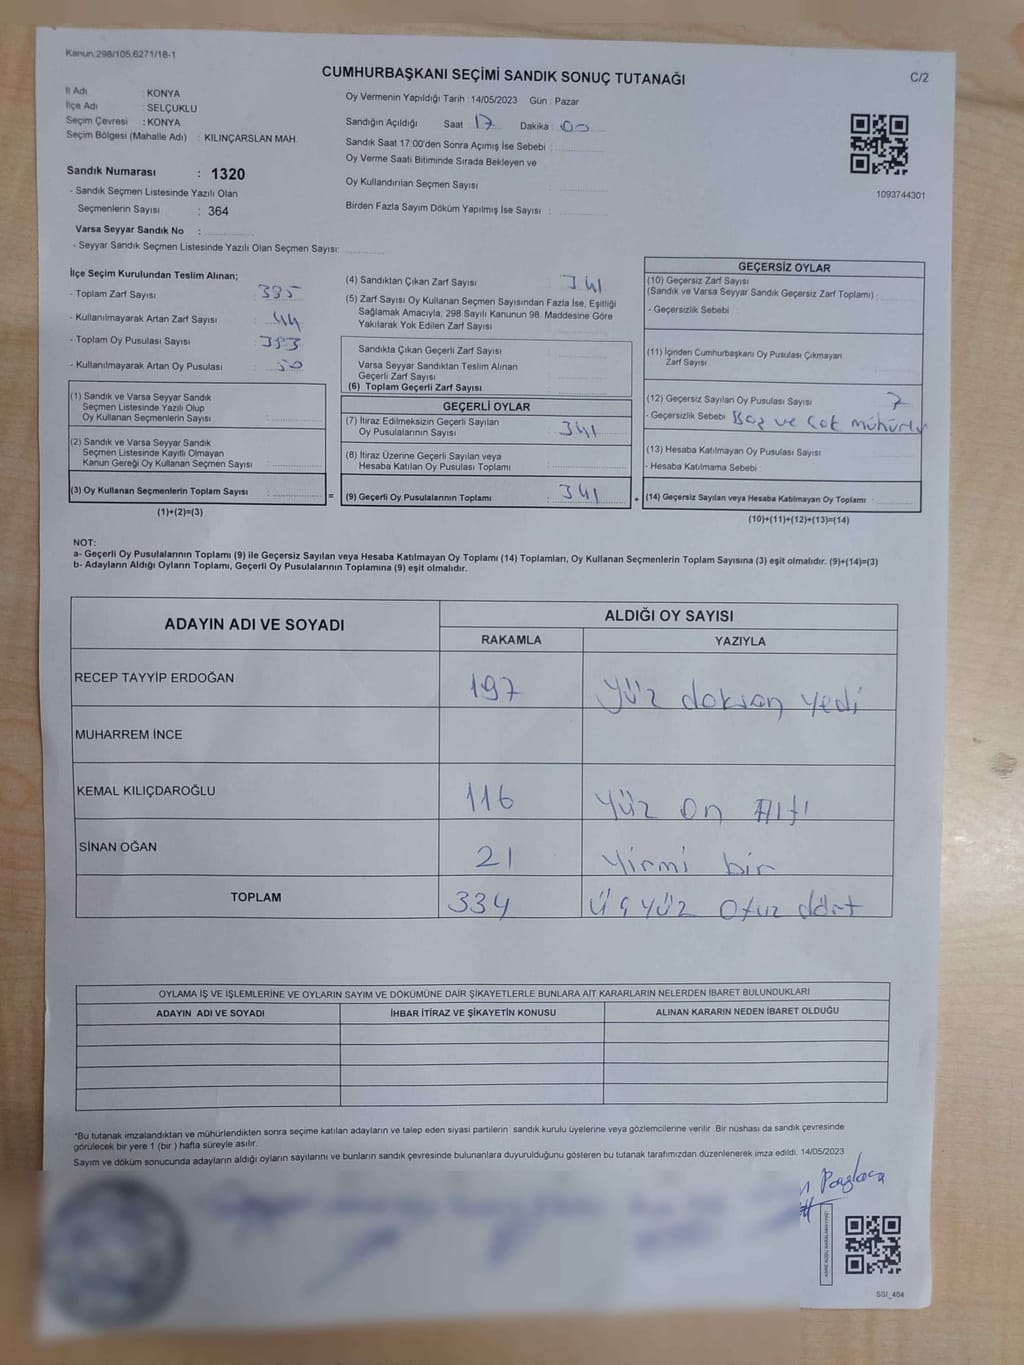 Kanun:298/105,6271/18-1
CUMHURBAŞKANI SEÇİMİ SANDIK SONUÇ TUTANAĞI
C/2
İl Adı : KONYA
İlçe Adı : SELÇUKLU
Seçim Çevresi : KONYA
Seçim Bölgesi (Mahalle Adı) : KILINÇARSLAN MAH.
Oy Vermenin Yapıldığı Tarih : 14/05/2023 Gün : Pazar
Sandığın Açıldığı Saat : 17 Dakika : 00
Sandık Saat 17:00'den Sonra Açımış İse Sebebi :
Oy Verme Saati Bitiminde Sırada Bekleyen ve
Oy Kullandırılan Seçmen Sayısı :
Birden Fazla Sayım Döküm Yapılmış İse Sayısı :
1093744301
Sandık Numarası : 1320
- Sandık Seçmen Listesinde Yazılı Olan
Seçmenlerin Sayısı : 364
Varsa Seyyar Sandık No :
- Seyyar Sandık Seçmen Listesinde Yazılı Olan Seçmen Sayısı:
İlçe Seçim Kurulundan Teslim Alınan;
- Toplam Zarf Sayısı : 385
- Kullanılmayarak Artan Zarf Sayısı : 44
- Toplam Oy Pusulası Sayısı : 393
- Kullanılmayarak Artan Oy Pusulası : 50
(1) Sandık ve Varsa Seyyar Sandık
Seçmen Listesinde Yazılı Olup
Oy Kullanan Seçmenlerin Sayısı :
(2) Sandık ve Varsa Seyyar Sandık
Seçmen Listesinde Kayıtlı Olmayan
Kanun Gereği Oy Kullanan Seçmen Sayısı :
(3) Oy Kullanan Seçmenlerin Toplam Sayısı :
(1)+(2)=(3)
(4) Sandıktan Çıkan Zarf Sayısı : 341
(5) Zarf Sayısı Oy Kullanan Seçmen Sayısından Fazla İse, Eşitliği
Sağlamak Amacıyla, 298 Sayılı Kanunun 98. Maddesine Göre
Yakılarak Yok Edilen Zarf Sayısı :
Sandıkta Çıkan Geçerli Zarf Sayısı :
Varsa Seyyar Sandıktan Teslim Alınan
Geçerli Zarf Sayısı :
(6) Toplam Geçerli Zarf Sayısı :
GEÇERLİ OYLAR
(7) İtiraz Edilmeksizin Geçerli Sayılan
Oy Pusulalarının Sayısı : 341
(8) İtiraz Üzerine Geçerli Sayılan veya
Hesaba Katılan Oy Pusulası Toplamı :
= (9) Geçerli Oy Pusulalarının Toplamı : 341 +
GEÇERSİZ OYLAR
(10) Geçersiz Zarf Sayısı
(Sandık ve Varsa Seyyar Sandık Geçersiz Zarf Toplamı) :
- Geçersizlik Sebebi :
(11) İçinden Cumhurbaşkanı Oy Pusulası Çıkmayan
Zarf Sayısı :
(12) Geçersiz Sayılan Oy Pusulası Sayısı : 7
- Geçersizlik Sebebi : Boş ve çok mühürlü
(13) Hesaba Katılmayan Oy Pusulası Sayısı :
- Hesaba Katılmama Sebebi :
(14) Geçersiz Sayılan veya Hesaba Katılmayan Oy Toplamı :
(10)+(11)+(12)+(13)=(14)
NOT:
a- Geçerli Oy Pusulalarının Toplamı (9) ile Geçersiz Sayılan veya Hesaba Katılmayan Oy Toplamı (14) Toplamları, Oy Kullanan Seçmenlerin Toplam Sayısına (3) eşit olmalıdır. (9)+(14)=(3)
b- Adayların Aldığı Oyların Toplamı, Geçerli Oy Pusulalarının Toplamına (9) eşit olmalıdır.
ADAYIN ADI VE SOYADI
ALDIĞI OY SAYISI
RAKAMLA YAZIYLA
RECEP TAYYİP ERDOĞAN 197 Yüz doksan yedi
MUHARREM İNCE
KEMAL KILIÇDAROĞLU 116 Yüz on Altı
SİNAN OĞAN 21 Yirmi bir
TOPLAM 334 Üç yüz otuz dört
OYLAMA İŞ VE İŞLEMLERİNE VE OYLARIN SAYIM VE DÖKÜMÜNE DAİR ŞİKAYETLERLE BUNLARA AİT KARARLARIN NELERDEN İBARET BULUNDUKLARI
ADAYIN ADI VE SOYADI İHBAR İTİRAZ VE ŞİKAYETİN KONUSU ALINAN KARARIN NEDEN İBARET OLDUĞU
*Bu tutanak imzalandıktan ve mühürlendikten sonra seçime katılan adayların ve talep eden siyasi partilerin sandık kurulu üyelerine veya gözlemcilerine verilir. Bir nüshası da sandık çevresinde
görülecek bir yere 1 (bir ) hafta süreyle asılır.
Sayım ve döküm sonucunda adayların aldığı oyların sayılarını ve bunların sandık çevresinde bulunanlara duyurulduğunu gösteren bu tutanak tarafımızdan düzenlenerek imza edildi. 14/05/2023
SSI_404